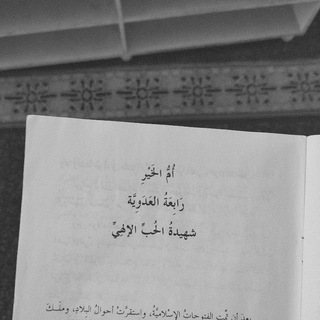 أُمُّ الخَيْرِ
رَابِعَةُ العَدَوِيَّة
شهيدةُ الحُبِّ الإلهِيِّ
بعد أن تمَّت الفتوحاتُ الإسْلاميَّةُ، واستقرَّتْ أحوالُ البلادِ، وملَكَ